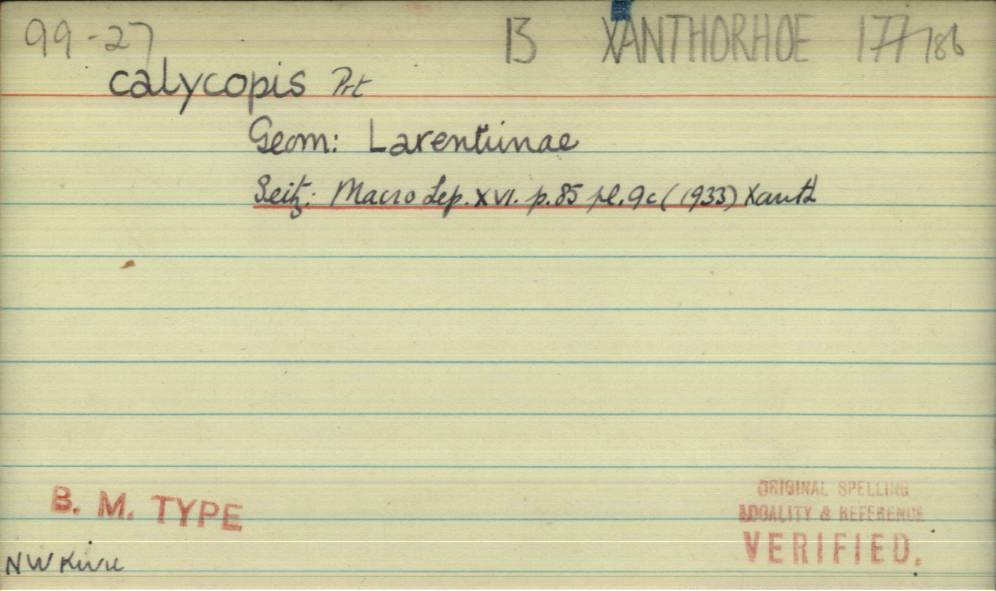 99-27 B XANTHORHOE 177/186
calycopis Prt
Geom: Larentiinae
Seitz: Macro Lep. XVI. p.85 pl.9c (1933) Xanth
B. M. TYPE
ORIGINAL SPELLING
LOCALITY & REFERENCE
VERIFIED.
NW Kivu